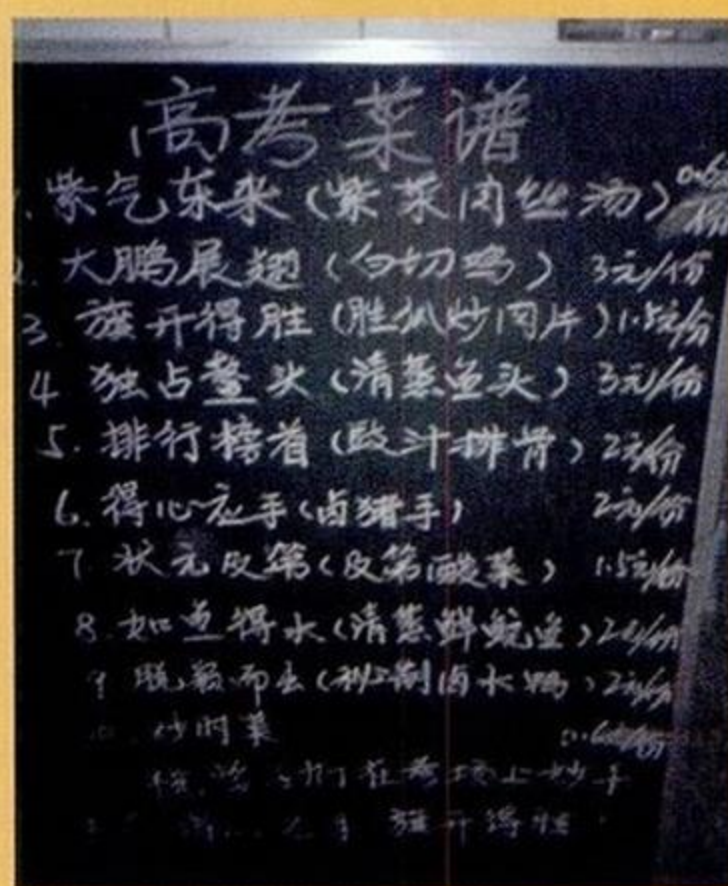 高考菜谱
1. 紫气东来（紫菜肉丝汤）
2. 大鹏展翅（白切鸡）3元/份
3. 旗开得胜（胜瓜炒肉片）1.5元/份
4 独占鳌头（清蒸鱼头）3元/份
5. 排行榜首（豉汁排骨）2元/份
6. 得心应手（卤猪手）2元/份
7 状元及第（及第酸菜）1.5元/份
8. 如鱼得水（清蒸鲜鲩鱼）2元/份
9 脱颖而出（秘制卤水鸭）2元/份
炒时菜 0.6元/份
在考场上妙手
旗开得胜